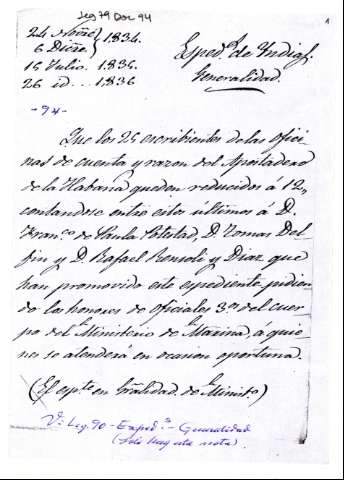 Leg 79 Doc 94
24 Novre } 1834.
6 Dicre }
15 Julio. 1835.
26 id... 1836
Exped.s de Indias.
Generalidad.
- 94 -
Que los 25 escribientes de las ofici-
nas de cuenta y razon del Apostadero
de la Habana queden reducidos á 12,
contandose entre estos últimos á D.
Fran.co de Paula Potestad, D. Tomas Del-
fin y D. Rafael Rensoli y Diaz que
han promovido este expediente pidien-
do los honores de oficiales 3.os del cuer-
po del Ministerio de Marina, á quie-
nes se atenderá en ocasion oportuna.
(El expte en Gralidad. de Minist.o)
V: Leg. 90 - Exped.s - Generalidad
(Solo hay esta nota).